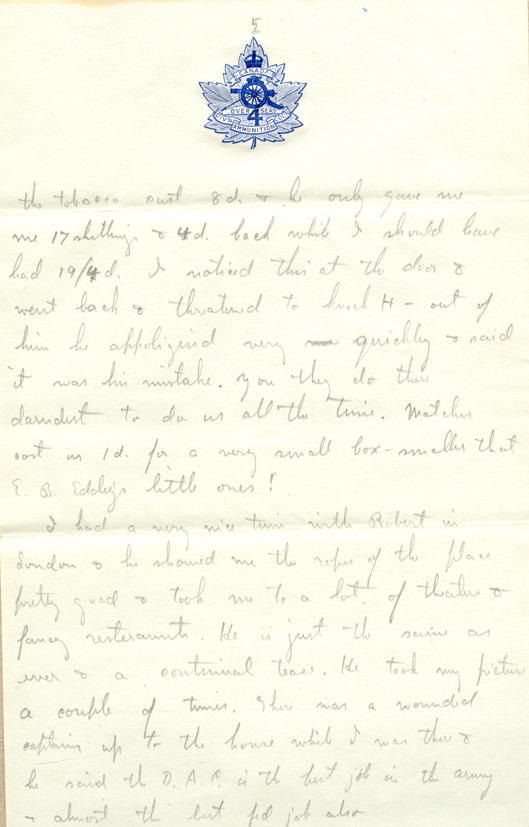 5
CANADA
OVER SEAS
4
DIV'N AMMUNITION COL'N
the tobacco cost 8d. & he only gave me
me 17 shillings & 4d. back while I should have
had 19/4d. I noticed this at the door &
went back & threatened to knock H— out of
him he appoligized very quickly & said
it was his mistake. you they do their
darndest to do us all the time. Matches
cost us 1d. for a very small box - smaller that
E. B. Eddy's little ones!
I had a very nice time with Robert in
London & he showed me the ropes of the place
pretty good & took me to a lot of theatres &
fancy resteraunts. He is just the same as
ever & a continual tease. He took my picture
a couple of times. There was a wounded
captain up to the house while I was there &
he said the D.A.C. is the best job in the army
& almost the best fed job also